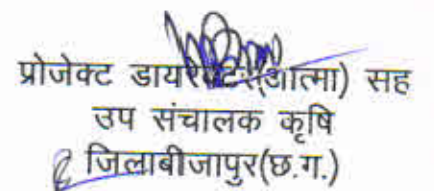 प्रोजेक्ट डायरेक्टर(आत्मा) सह
उप संचालक कृषि
जिलाबीजापुर(छ.ग.)